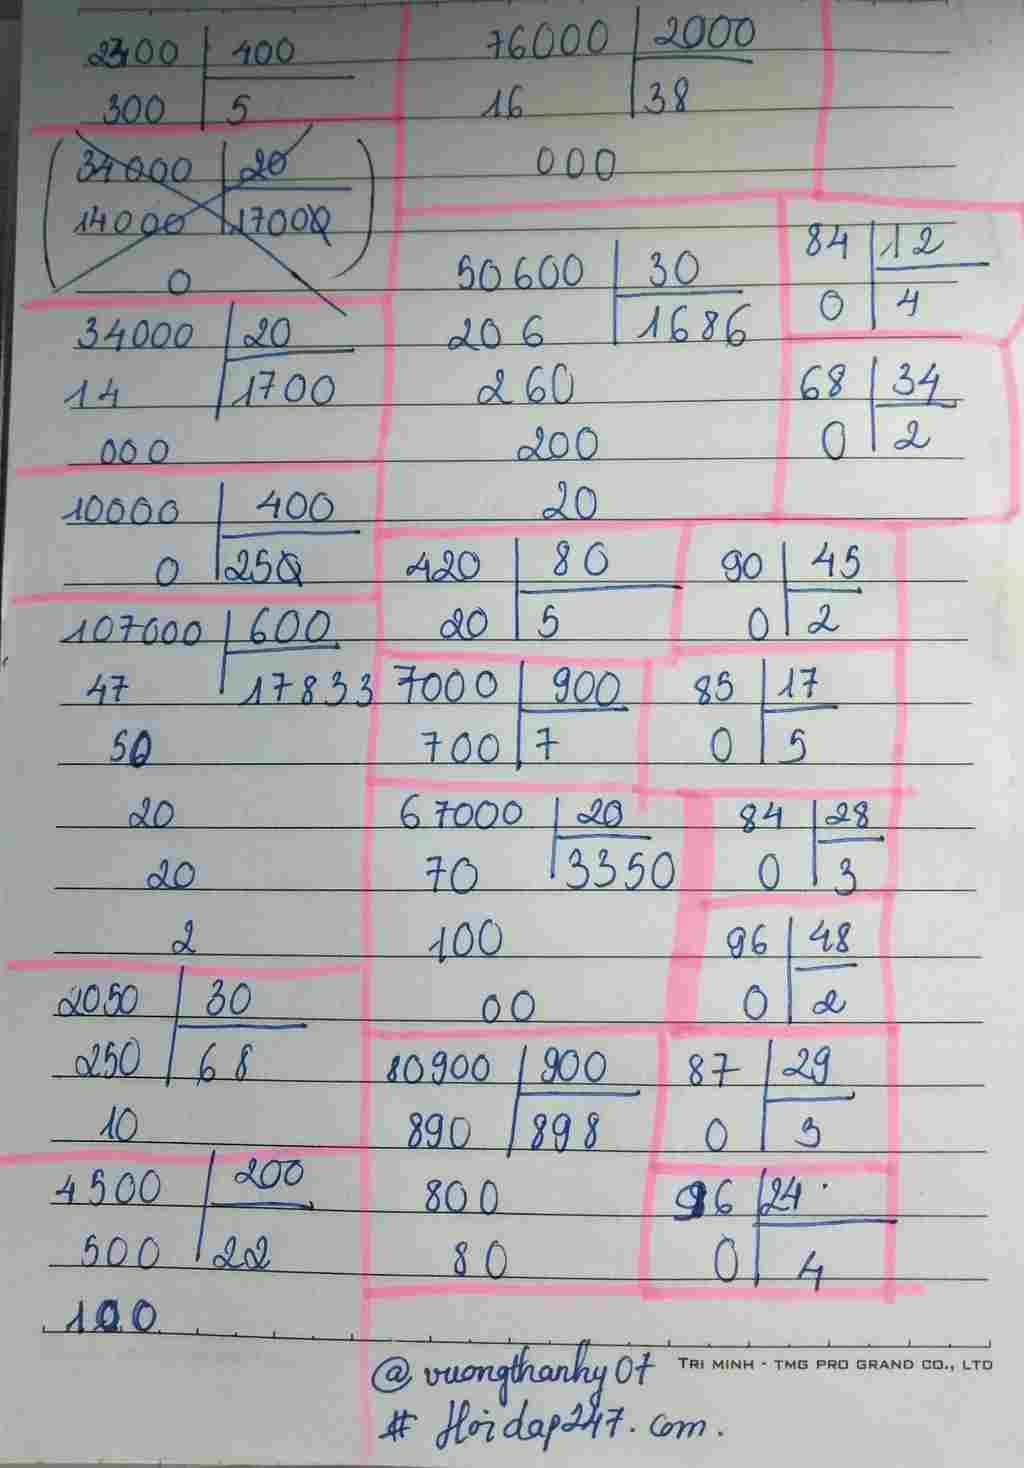 2300 400
300 5
34000 20
14000 1700
0
34000 20
14 1700
000
10000 400
0 250
107000 600
47 17833
50
20
20
2
2050 30
250 68
10
4500 200
500 22
100
76000 2000
16 38
000
50600 30
206 1686
260
200
20
420 80
20 5
7000 900
700 7
67000 20
70 3350
100
00
80900 900
890 898
800
80
84 12
0 4
68 34
0 2
90 45
0 2
85 17
0 5
84 28
0 3
96 48
0 2
87 29
0 3
96 24
0 4
TRI MINH - TMG PRO GRAND CO., LTD
@vuongthanhy07
# Hoidap247.com.